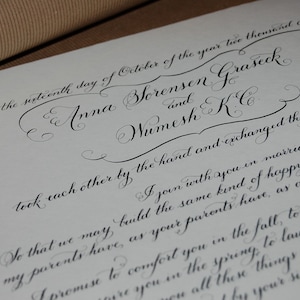 the sixteenth day of October of the year two thousand
Anna Sorensen Graseck
and
Wumesh K C
took each other by the hand and exchanged th
I join with you in marri
So that we may build the same kind of happy
my parents have, as your parents have, as
I promise to comfort you in the fall, to
you in the spring, to lau
you all these things
by your s